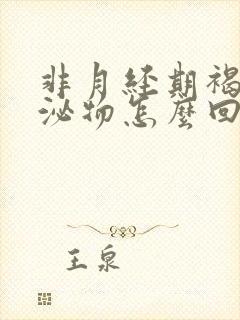 非月経期褐
泌物怎麼回
王泉